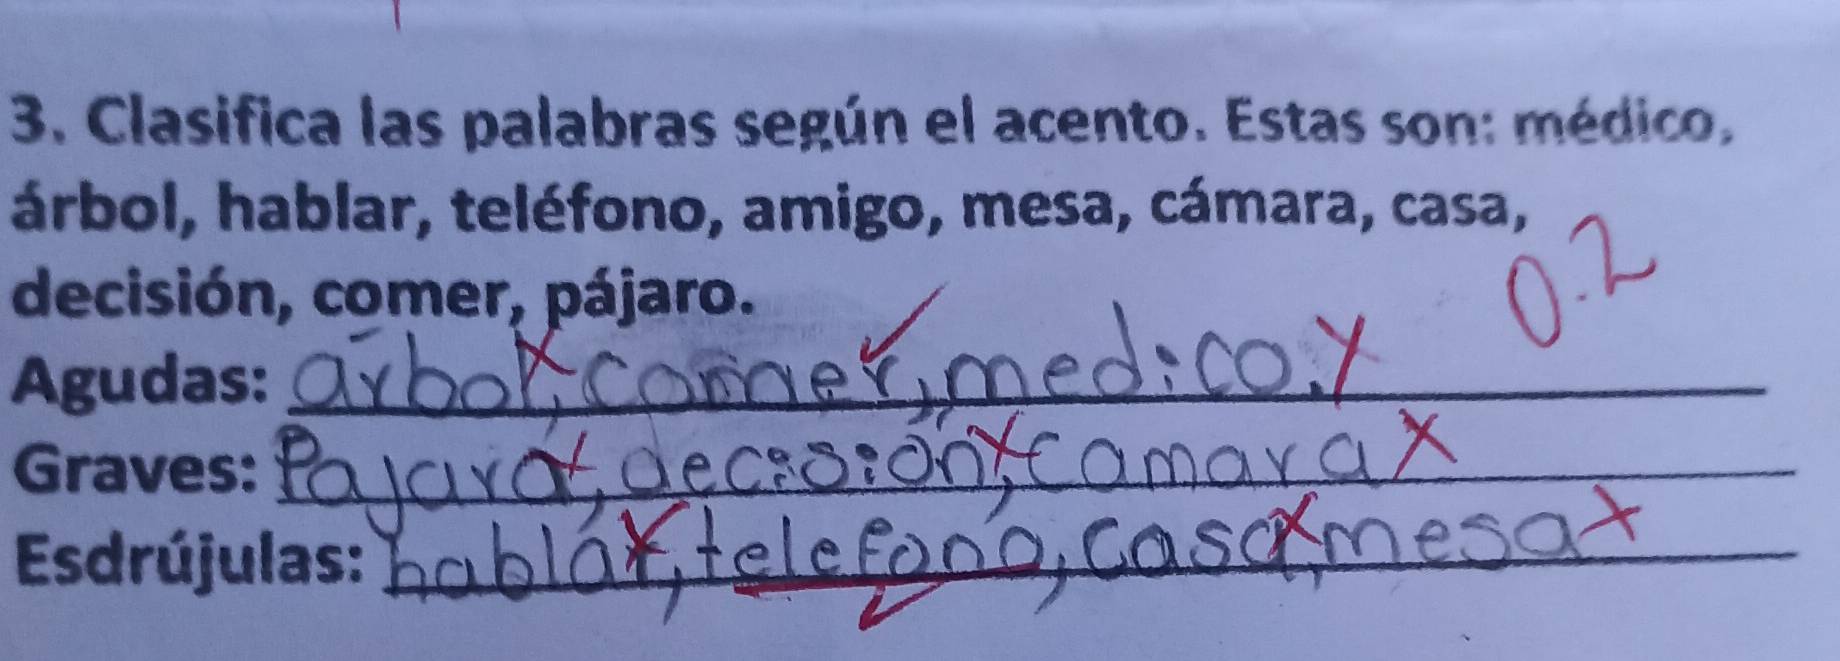 3. Clasifica las palabras según el acento. Estas son: médico,
árbol, hablar, teléfono, amigo, mesa, cámara, casa,
decisión, comer, pájaro.
0.2
Agudas: árbol, comer, medico.
Graves: Pajara, decisión, camara
Esdrújulas: hablár, telefono, casa, mesa